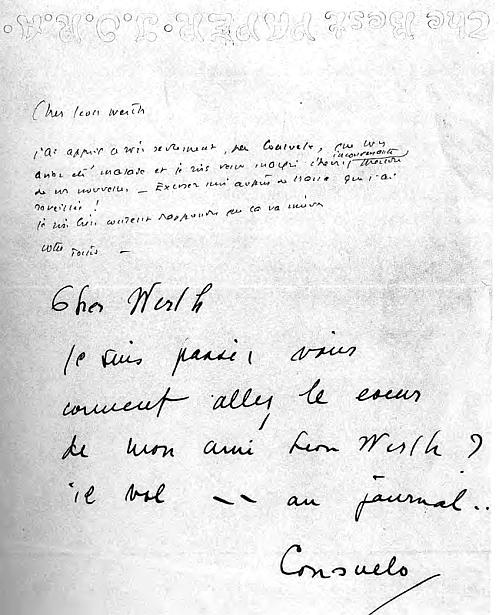 The Best PAPER · I.O.R.A ·
Cher Leon Werth
j'ai appris à mis seulement, par Consuelo, que vous
aviez été malade et je suis venu malgré l'heure inconvenante
de vos nouvelles — Excusez moi auprès de que j'ai
réveillée !
je suis bien content d'apprendre que ça va mieux
votre —
Cher Werth
je suis passée, vous
comment allez le coeur
de mon ami Leon Werth ?
il vol -- au journal..
Consuelo